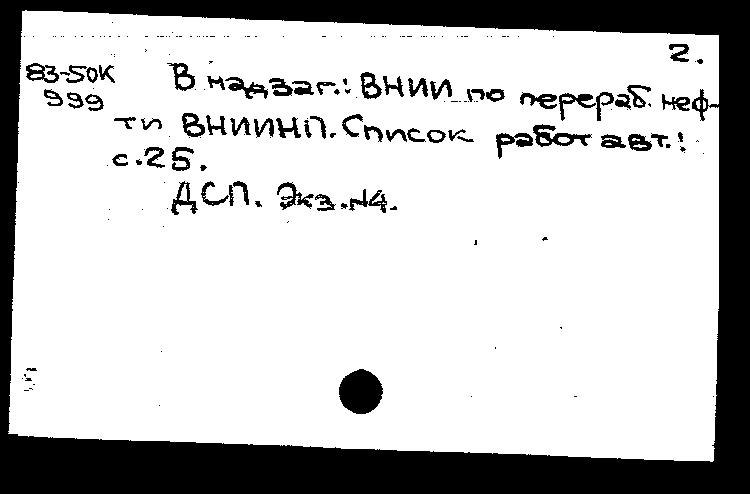 2.
83-50К В надзаг.: ВНИИ по перераб. неф-
999
ти ВНИИНП. Список работ авт.:
с.25.
ДСП. Экз.N4.